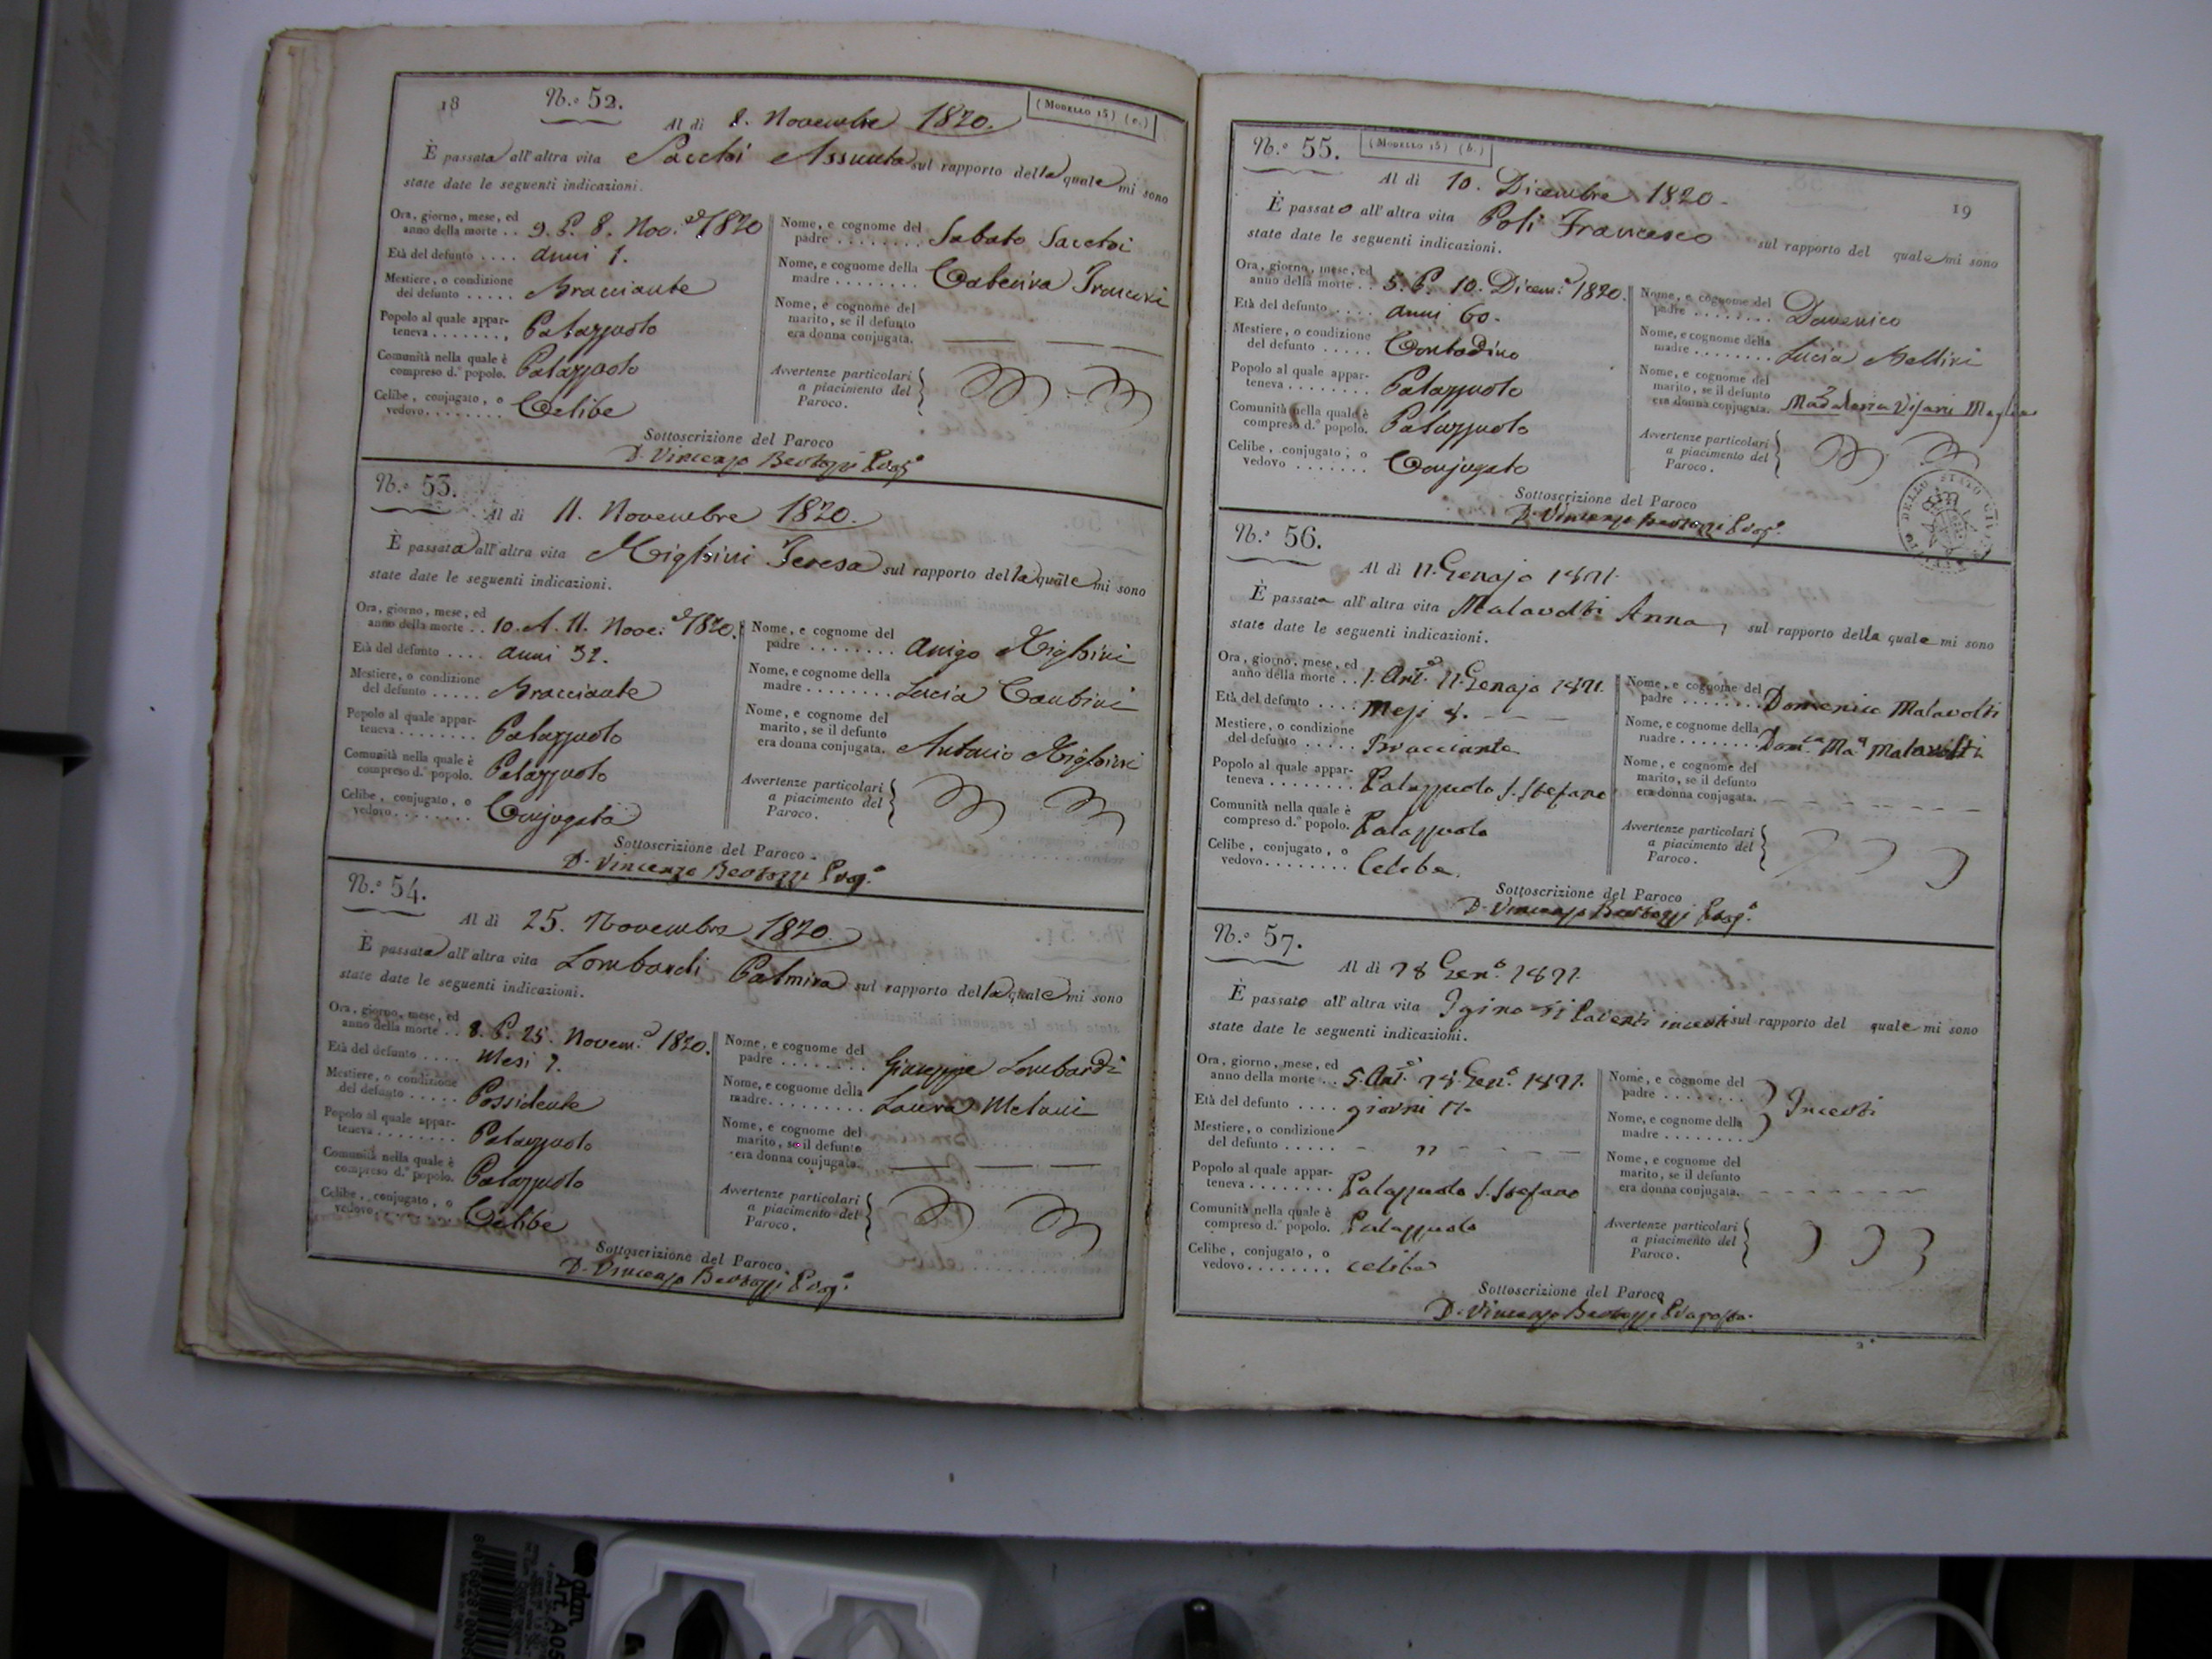 18
N.° 52.
(Modello 15) (c.)
Al dì 8. Novembre 1820.
È passata all'altra vita Sacchi Assunta sul rapporto della quale mi sono
state date le seguenti indicazioni.
Ora, giorno, mese, ed
anno della morte . . 9. P. 8. Nov. 1820
Età del defunto . . . . anni 1.
Mestiere, o condizione
del defunto . . . . . Bracciante
Popolo al quale appar-
teneva . . . . . . . , Palazzuolo
Comunità nella quale è
compreso d.° popolo. Palazzuolo
Celibe, conjugato, o
vedovo. . . . . . . . Celibe
Nome, e cognome del
padre . . . . . . . . Sabato Sacchi
Nome, e cognome della
madre . . . . . . . . Catterina Franconi
Nome, e cognome del
marito, se il defunto
era donna conjugata.
Avvertenze particolari
a piacimento del
Paroco.
Sottoscrizione del Paroco
D. Vincenzo
N.° 53.
Al dì 11. Novembre 1820.
È passata all'altra vita Righini Teresa sul rapporto della quale mi sono
state date le seguenti indicazioni.
Ora, giorno, mese, ed
anno della morte . . 10. A. 11. Nove. 1820.
Età del defunto . . . . anni 32.
Mestiere, o condizione
del defunto . . . . . Bracciante
Popolo al quale appar-
teneva . . . . . . . . Palazzuolo
Comunità nella quale è
compreso d.° popolo. Palazzuolo
Celibe, conjugato, o
vedovo. . . . . . . . Conjugata
Nome, e cognome del
padre . . . . . . . . Righini
Nome, e cognome della
madre . . . . . . . . Lucia
Nome, e cognome del
marito, se il defunto
era donna conjugata. Antonio Righini
Avvertenze particolari
a piacimento del
Paroco.
Sottoscrizione del Paroco
D. Vincenzo
N.° 54.
Al dì 25. Novembre 1820.
È passata all'altra vita Lombardi Palmira sul rapporto della quale mi sono
state date le seguenti indicazioni.
Ora, giorno, mese, ed
anno della morte . . 8. P. 25. Novem. 1820.
Età del defunto . . . . Mesi 7.
Mestiere, o condizione
del defunto . . . . . Possidente
Popolo al quale appar-
teneva . . . . . . . . Palazzuolo
Comunità nella quale è
compreso d.° popolo. Palazzuolo
Celibe, conjugato, o
vedovo. . . . . . . . Celibe
Nome, e cognome del
padre . . . . . . . . Giuseppe Lombardi
Nome, e cognome della
madre. . . . . . . . . Laura Melani
Nome, e cognome del
marito, se il defunto
era donna conjugata.
Avvertenze particolari
a piacimento del
Paroco.
Sottoscrizione del Paroco
D. Vincenzo
N.° 55.
(Modello 15) (b.)
19
Al dì 10. Dicembre 1820.
È passato all'altra vita Poli Francesco sul rapporto del quale mi sono
state date le seguenti indicazioni.
Ora, giorno, mese, ed
anno della morte . . 5. P. 10. Dicem. 1820.
Età del defunto . . . . anni 60.
Mestiere, o condizione
del defunto . . . . . Contadino
Popolo al quale appar-
teneva . . . . . . . . Palazzuolo
Comunità nella quale è
compreso d.° popolo. Palazzuolo
Celibe, conjugato, o
vedovo . . . . . . . Conjugato
Nome, e cognome del
padre . . . . . . . . Domenico
Nome, e cognome della
madre . . . . . . . . Lucia Bellini
Nome, e cognome del
marito, se il defunto
era donna conjugata. Madalena Visani Moglie
Avvertenze particolari
a piacimento del
Paroco.
Sottoscrizione del Paroco
D. Vincenzo
N.° 56.
Al dì 11. Genajo 1821.
È passata all'altra vita Malavolti Anna, sul rapporto della quale mi sono
state date le seguenti indicazioni.
Ora, giorno, mese, ed
anno della morte . . 1. Ant. 11. Genajo 1821.
Età del defunto . . . . Mesi 8.
Mestiere, o condizione
del defunto . . . . . Bracciante
Popolo al quale appar-
teneva . . . . . . . . Palazzuolo S. Stefano
Comunità nella quale è
compreso d.° popolo. Palazzuolo
Celibe, conjugato, o
vedovo. . . . . . . . Celibe.
Nome, e cognome del
padre . . . . . . . . Domenico Malavolti
Nome, e cognome della
madre . . . . . . . . Dom.ca Ma.a Malavolti
Nome, e cognome del
marito, se il defunto
era donna conjugata.
Avvertenze particolari
a piacimento del
Paroco.
Sottoscrizione del Paroco
D. Vincenzo
N.° 57.
Al dì 28 Gen.° 1821.
È passato all'altra vita Igino di Parenti incerti sul rapporto del quale mi sono
state date le seguenti indicazioni.
Ora, giorno, mese, ed
anno della morte . . 5. Ant. 28. Gen.° 1821.
Età del defunto . . . . giorni
Mestiere, o condizione
del defunto . . . . . - " - - - -
Popolo al quale appar-
teneva . . . . . . . . Palazzuolo S. Stefano
Comunità nella quale è
compreso d.° popolo. Palazzuolo
Celibe, conjugato, o
vedovo. . . . . . . . celibe
Nome, e cognome del
padre . . . . . . . .
Nome, e cognome della
madre . . . . . . . .
Incerti
Nome, e cognome del
marito, se il defunto
era donna conjugata.
Avvertenze particolari
a piacimento del
Paroco.
Sottoscrizione del Paroco
D. Vincenzo
2*
adan
Art. A05